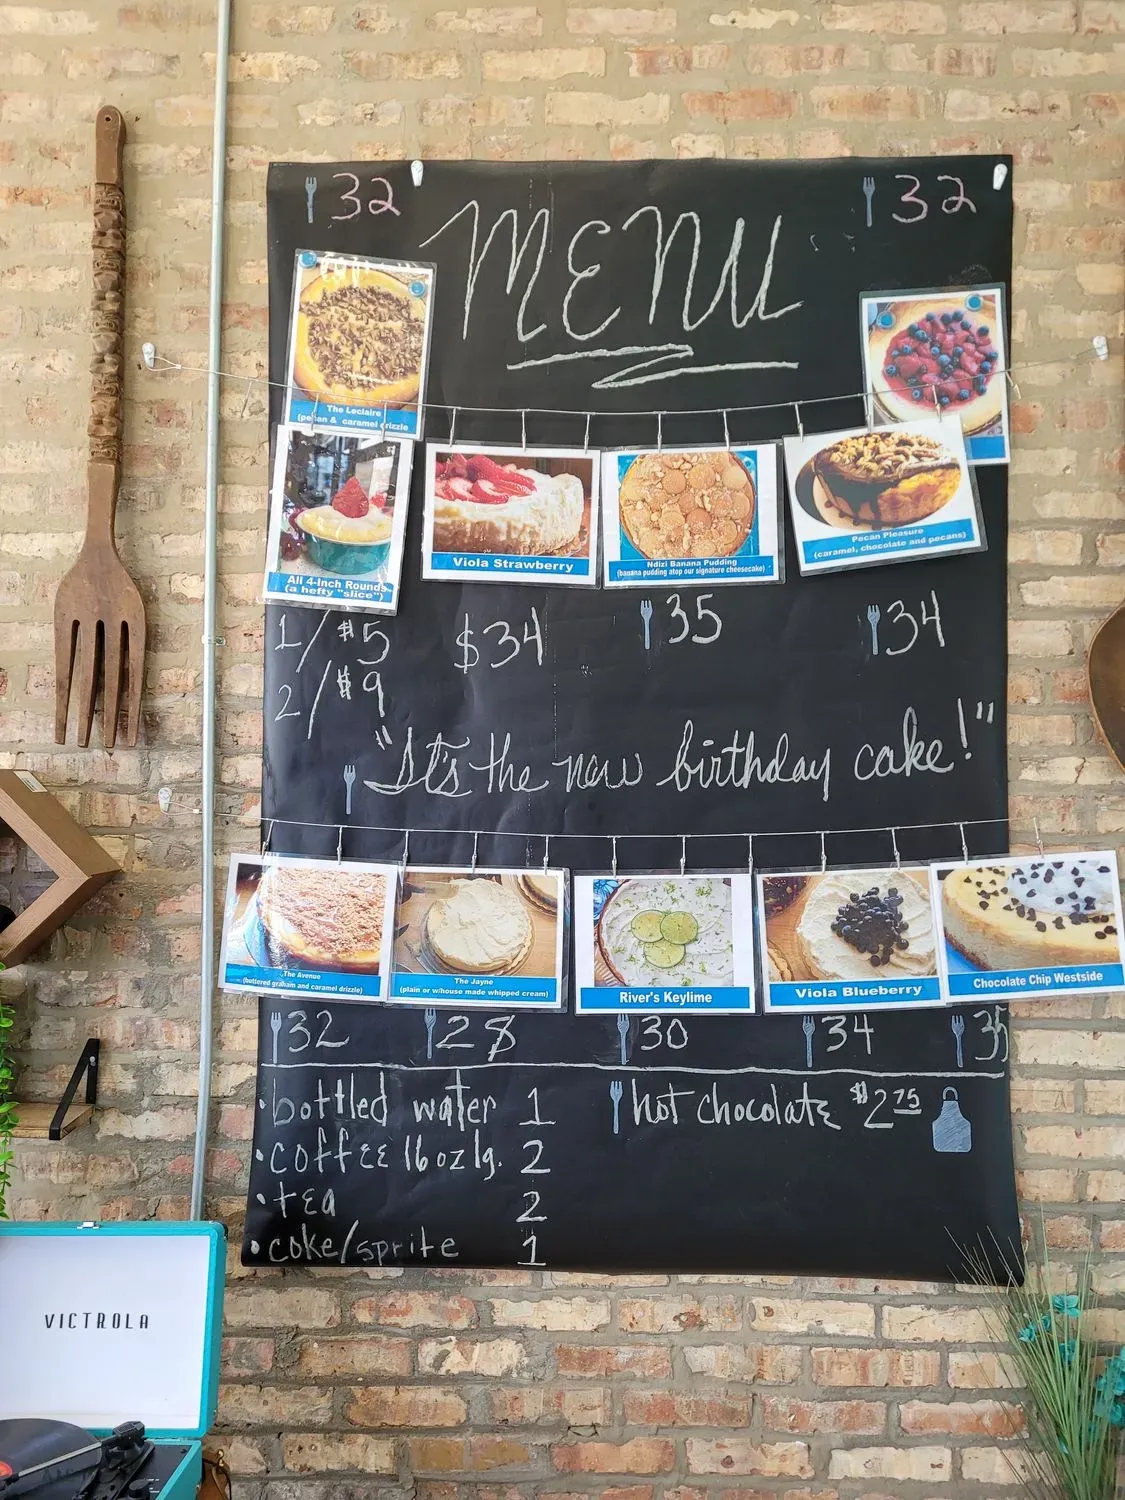 32
32
MENU
The Leclaire
(pecan & caramel drizzle
All 4-Inch Rounds
(a hefty "slice")
Viola Strawberry
Ndizi Banana Pudding
(banana pudding atop our signature cheesecake)
Pecan Pleasure
(caramel, chocolate and pecans)
1/$5
2/$9
$34
35
34
"It's the new birthday cake!"
The Avenue
(buttered graham and caramel drizzle)
The Jayne
(plain or w/house made whipped cream)
River's Keylime
Viola Blueberry
Chocolate Chip Westside
32
28
30
34
35
•bottled water 1
•coffee 16oz lg. 2
•tea 2
•coke/sprite 1
hot chocolate $2.75
VICTROLA